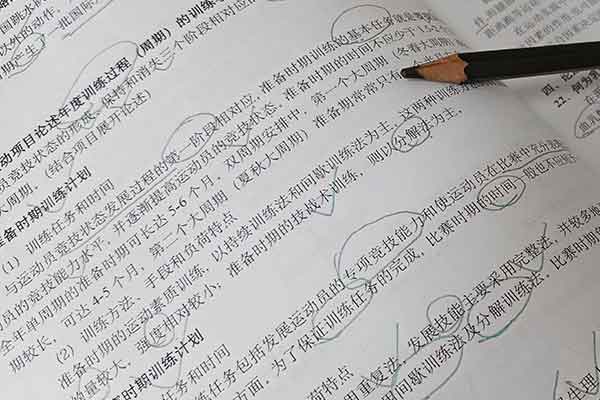 动项目论述年度训练过程（周期）的训练
员竞技状态的形成、保持和消失三个阶段相对应
大周期。（结合项目展开论述）
准备时期训练计划
（1） 训练任务和时间
与运动员竞技状态发展过程的第一阶段相对应，准备时期训练的基本任务就是要
动员的竞技能力水平，并逐渐提高运动员的竞技状态。准备时期的时间不应少于1.5
全年单周期的准备时期可长达5-6个月，双周期安排中，第一个大周期（冬春大周期）
期较长，可达4-5个月，第二个大周期（夏秋大周期）准备期常常只
（2） 训练方法、手段和负荷特点
准备时期的运动素质训练，以持续训练法和间歇训练法为主，这两种训练
的量较大，强度相对较小；准备时期的技战术训练，则以分解法为主。
赛时期训练计划
任务和时间
练任务包括发展运动员的专项竞技能力和使运动员在比赛中充分发
方面，为了保证训练任务的完成，比赛时期的时间，一般也不应
荷特点
用重复法，发展技能主要采用完整法，并较多
用间歇训练法及分解训练法，比赛时期
22.